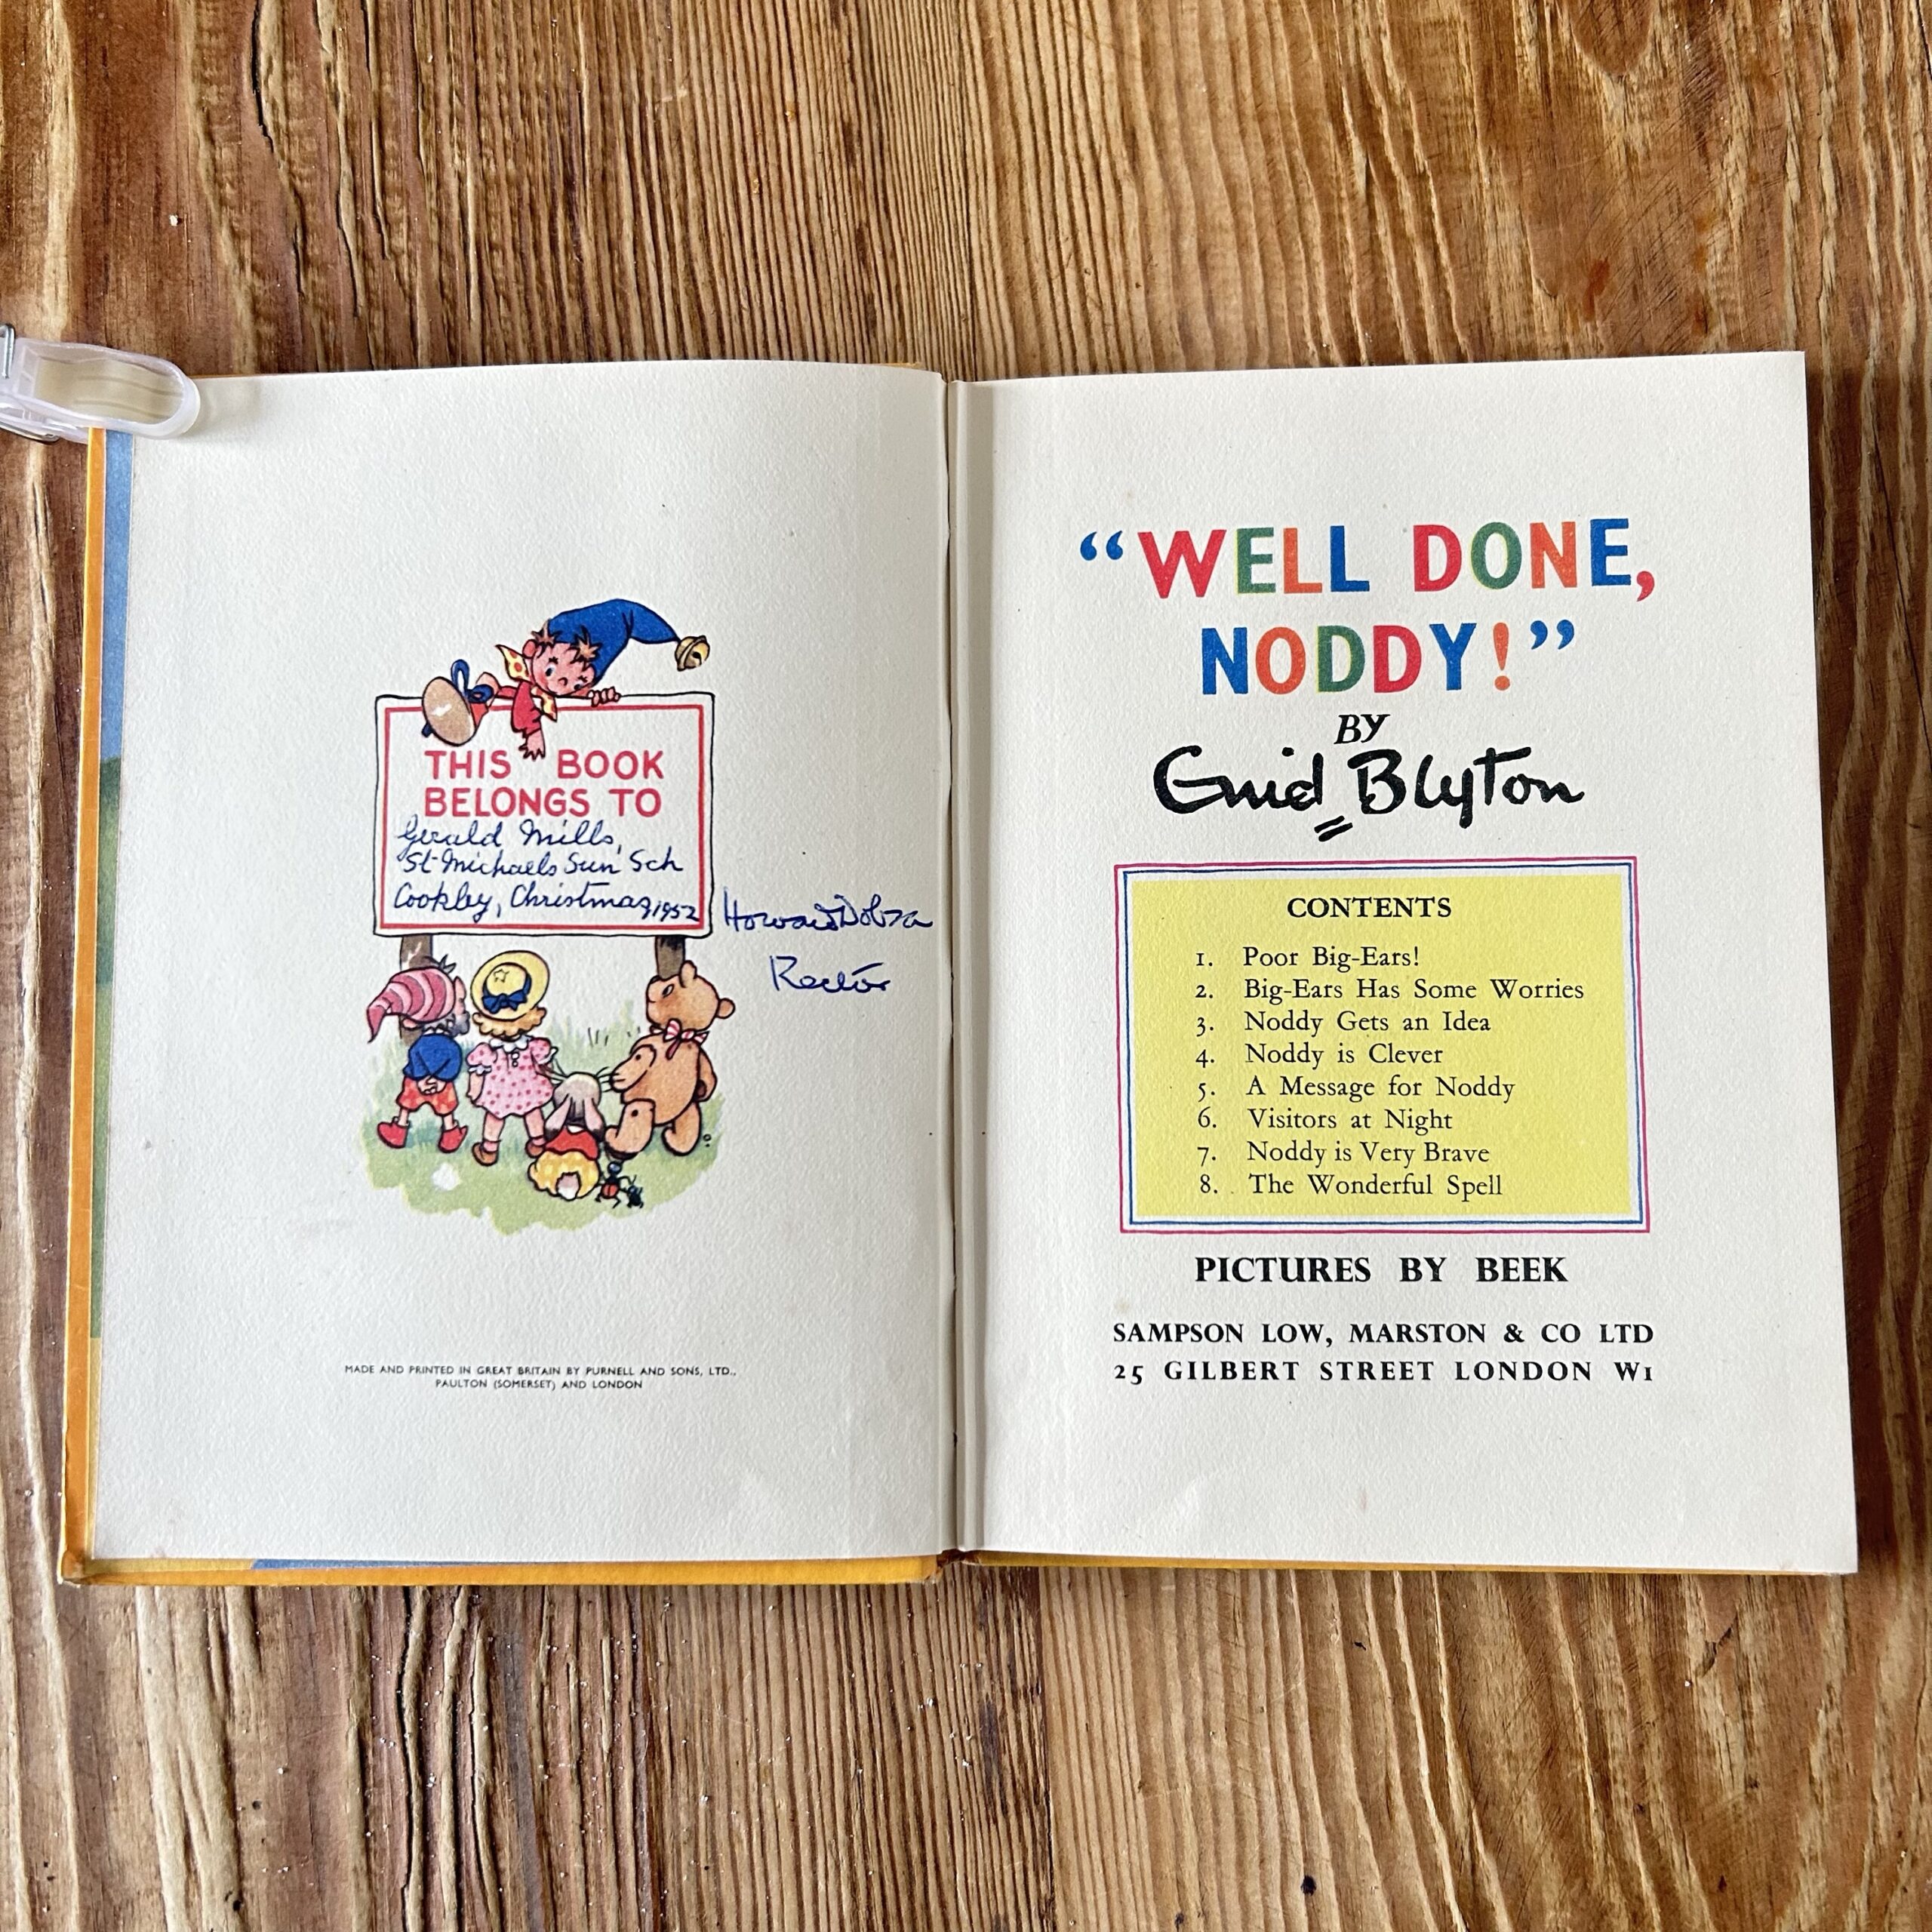 THIS BOOK
BELONGS TO
Gerald Mills,
St Michaels Sun Sch
Cookley, Christmas, 1952
Howard
Rector
MADE AND PRINTED IN GREAT BRITAIN BY PURNELL AND SONS, LTD.,
PAULTON (SOMERSET) AND LONDON
“WELL DONE,
NODDY!”
BY
Enid Blyton
CONTENTS
1. Poor Big-Ears!
2. Big-Ears Has Some Worries
3. Noddy Gets an Idea
4. Noddy is Clever
5. A Message for Noddy
6. Visitors at Night
7. Noddy is Very Brave
8. The Wonderful Spell
PICTURES BY BEEK
SAMPSON LOW, MARSTON & CO LTD
25 GILBERT STREET LONDON W1